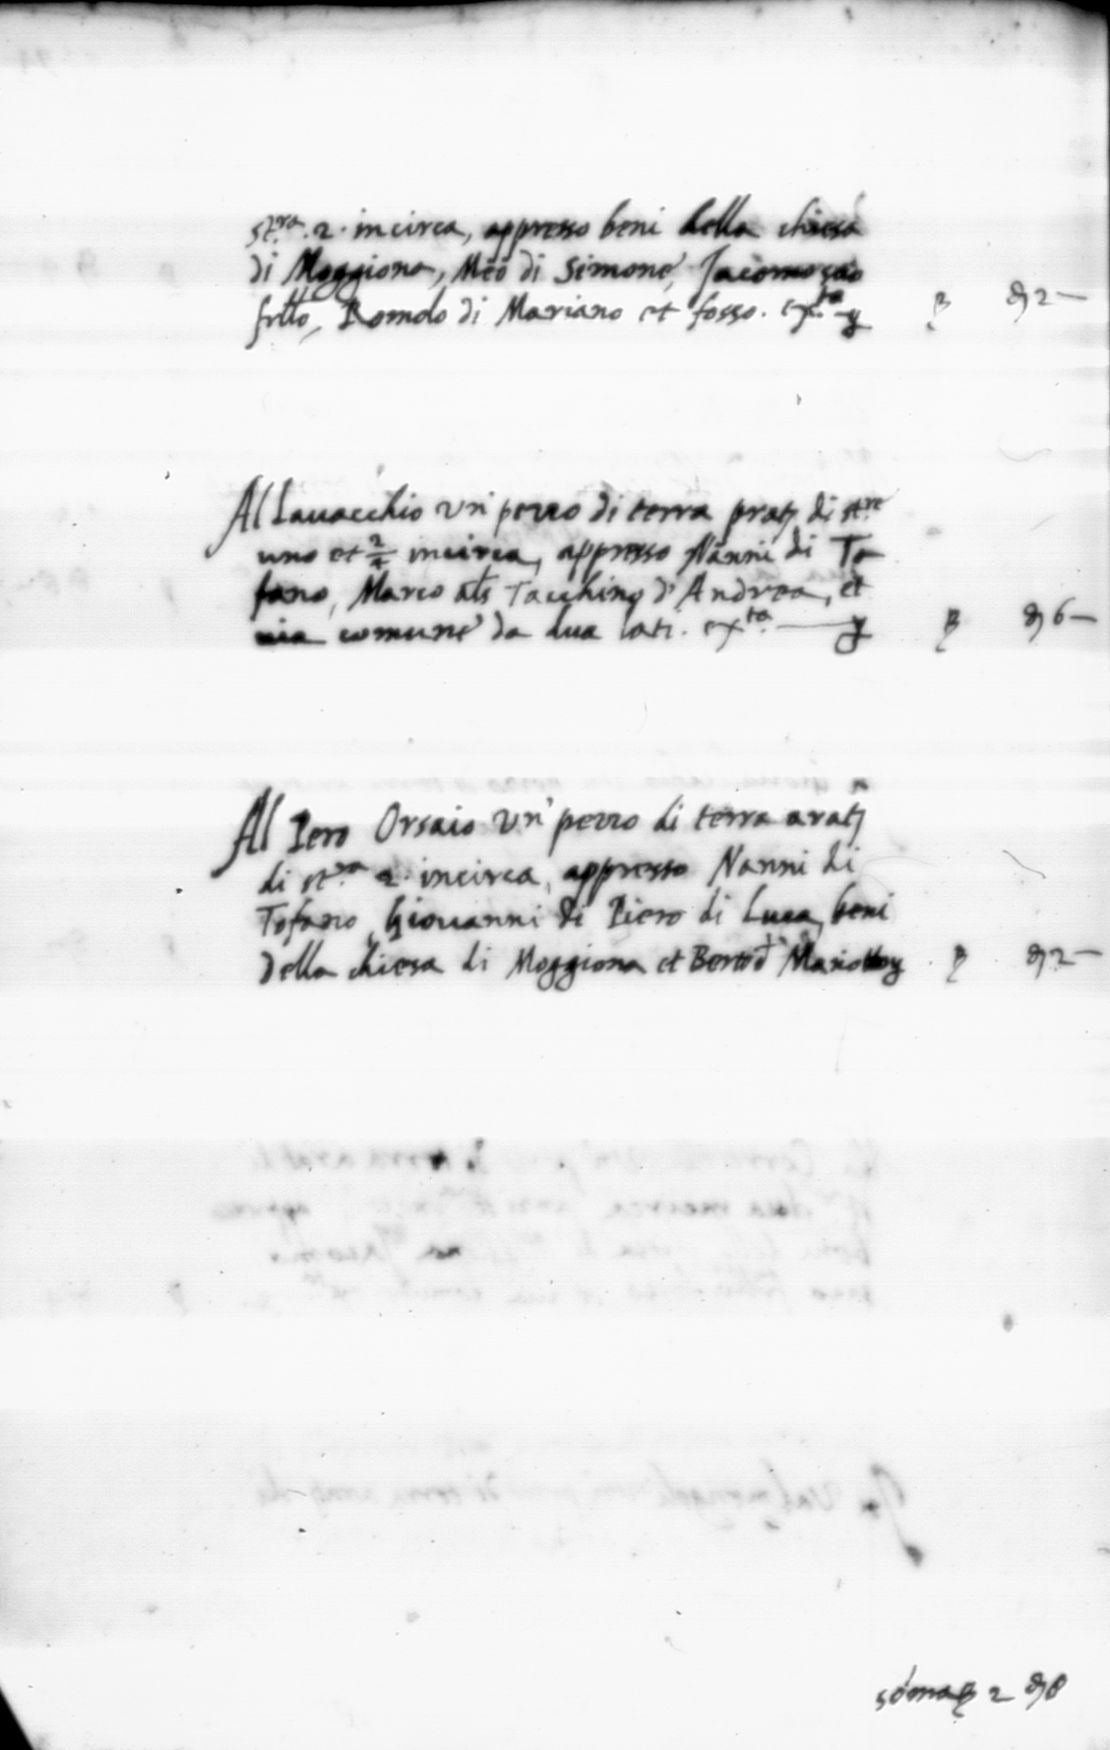 st.ra 2. incirca, appresso beni della chiesa
di Moggiona, Meo di Simone, Jacomo suo
frtto, Romolo di Mariano et fosso. ex.ta
2 —
Al Lauacchio un' pezzo di terra prat. di st.re
uno et incirca, appresso Nanni di To-
fano, Marco als Tacchino d'Andrea, et
uia comune da dua lati. ex.ta
6 —
Al Pero Orsaio un' pezzo di terra arat.
di st.ra 2. incirca, appresso Nanni di
Tofano, Giouanni di Piero di Luca, beni
della chiesa di Moggiona et Berto d' Mariotto
2 —
soma 2 8